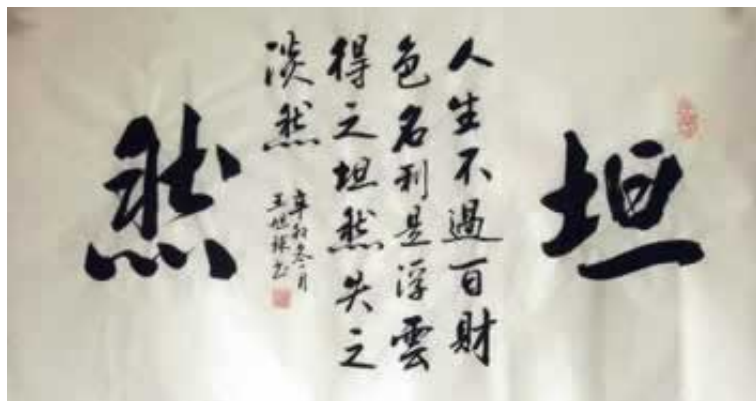 坦
人生不過百財
色名利是浮雲
得之坦然失之
淡然
辛丑冬月
王旭林书
然